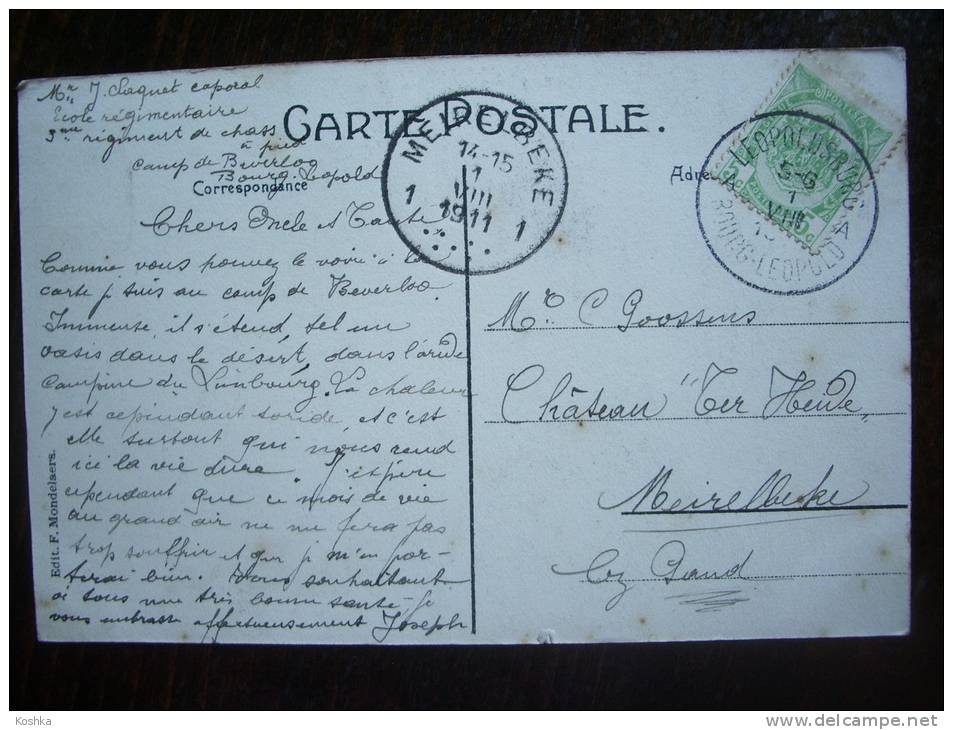 Mr J. Claquet caporal
Ecole régimentaire
3me régiment de chass.
à pied
Camp de Beverloo
Bourg-Léopold
CARTE POSTALE.
Correspondance
Adre
MEIRELBEKE
14-15
1 VIII 1
1911
LEOPOLDSBURG
5-6
1
VIII
BOURG-LEOPOLD
A
Chers Oncle et Tante
Comme vous pouvez le voir à la
carte je suis au camp de Beverloo.
Immense, il s'étend tel un
oasis dans le désert, dans l'aride
Campine du Limbourg. La chaleur
y est cependant torride, et c'est
elle surtout qui nous rend
ici la vie dure. J'espère
cependant que ce mois de vie
au grand air ne me fera pas
trop souffrir et que je m'en por-
terai bien. Vous souhaitant
à tous une très bonne santé, je
vous embrasse affectueusement Joseph
Mr C Goossens
Château "Ter Heide"
Meirelbecke
lez Gand
Edit. F. Mondelaers.
Koshka
www.delcampe.net